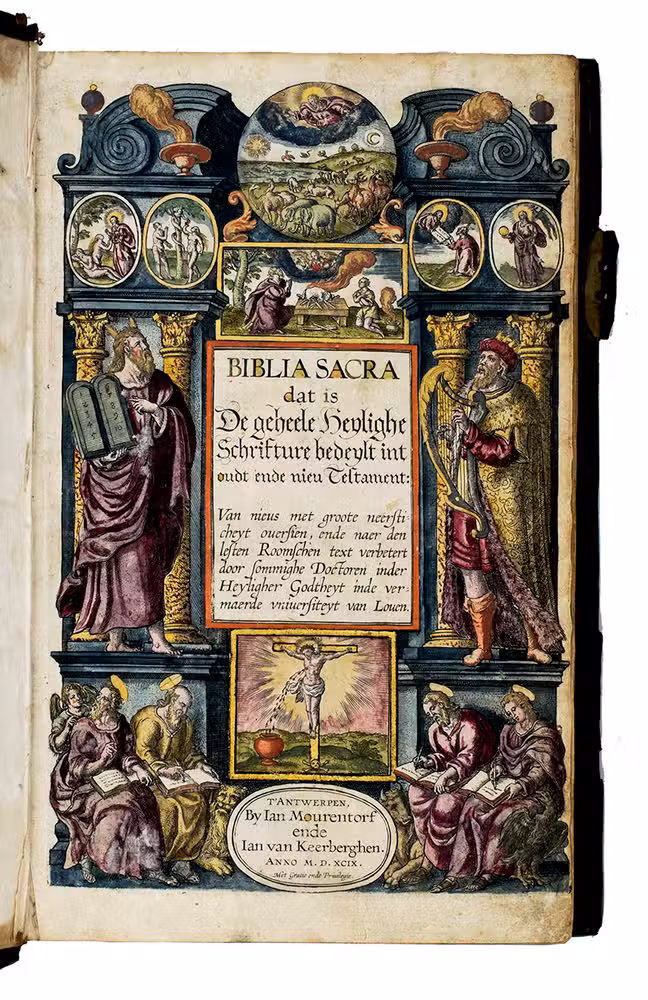 BIBLIA SACRA
dat is
De geheele Heylighe
Schrifture bedeylt int
oudt ende nieu Testament:
Van nieus met groote neersti-
cheyt ouersien, ende naer den
lesten Roomschen text verbetert
door sommighe Doctoren inder
Heyligher Godtheyt inde ver-
maerde vniuersiteyt van Louen.
T'ANTWERPEN,
By Ian Mourentorf
ende
Ian van Keerberghen.
ANNO M. D. XCIX.
Met Gratie ende Privilegie.